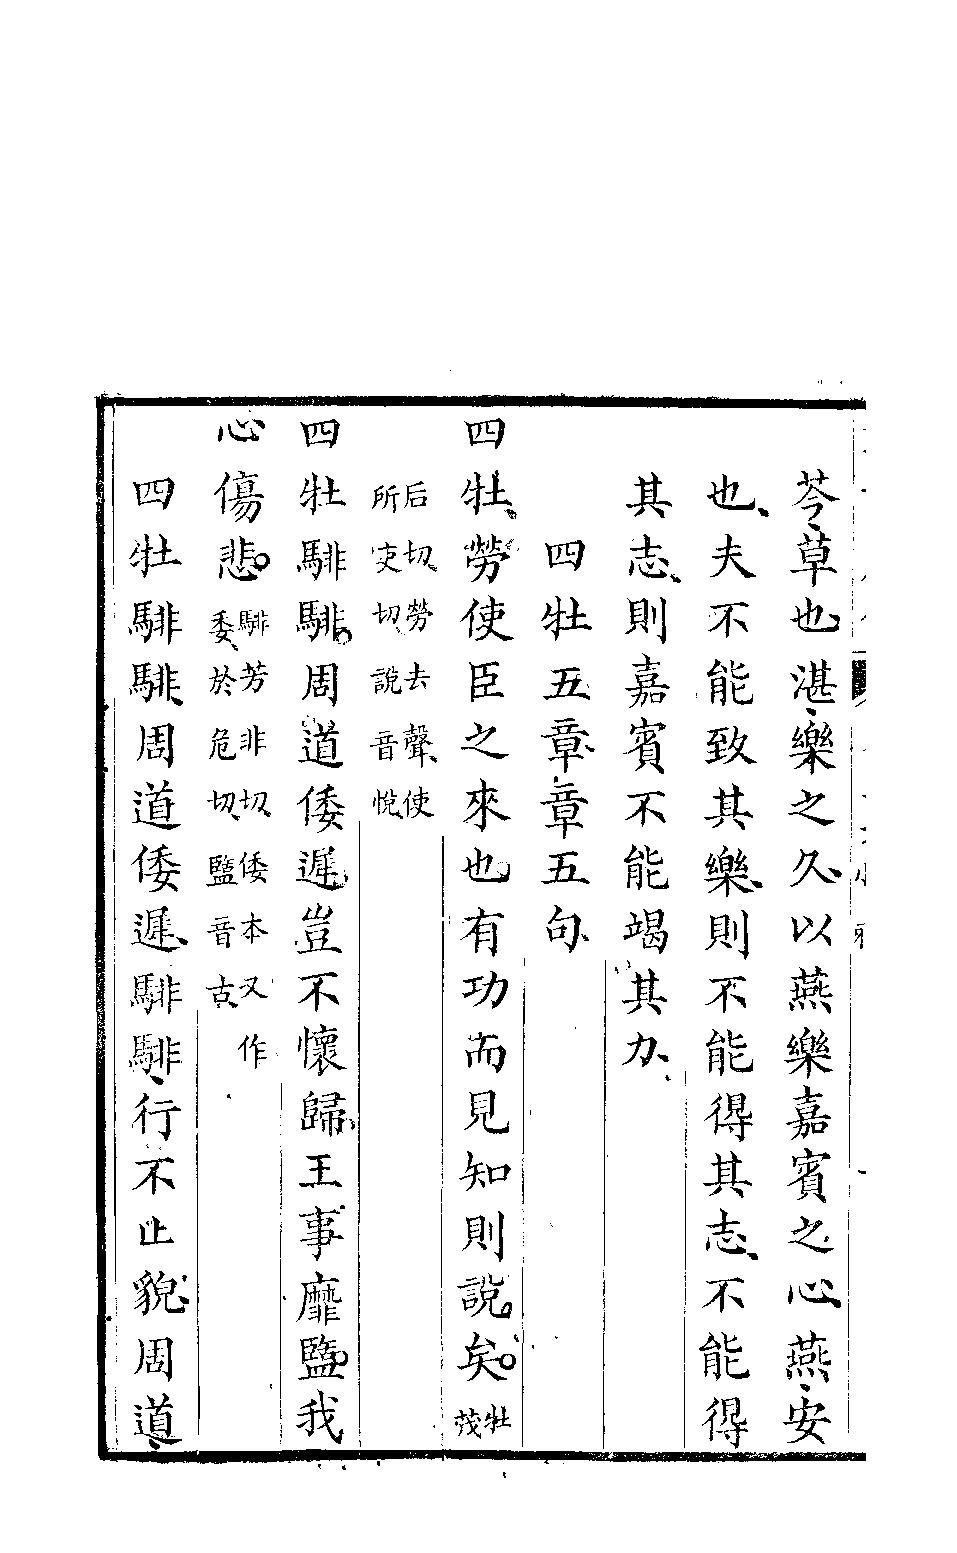 芩、草也、湛、樂之久、以燕樂嘉賓之心、燕、安
也、夫不能致其樂、則不能得其志、不能得
其志、則嘉賓不能竭其力、
四牡五章、章五句、
四牡、勞使臣之來也、有功而見知則說矣。牡茂
后切、勞去聲、使
所吏切、說音悅、
四牡騑騑。周道倭遲。豈不懷歸。王事靡盬。我
心傷悲。騑芳非切、倭本又作
委、於危切、盬音古、
四牡騑騑、周道倭遲、騑騑、行不止貌、周道、